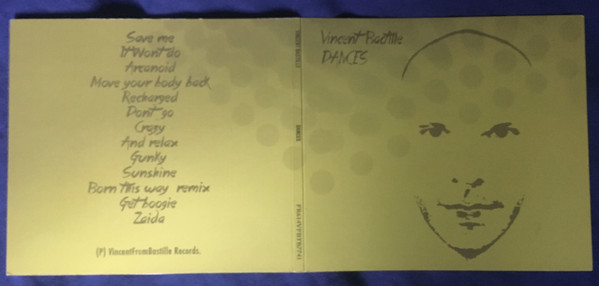 Save me
It Won't do
Arcanoid
Move your body back
Recharged
Don't go
Crazy
And relax
Gunky
Sunshine
Born this way remix
Get boogie
Zaida
(P) VincentFromBastille Records.
VINCENT BASTILLE
DANCES
Vincent Bastille
DANCES